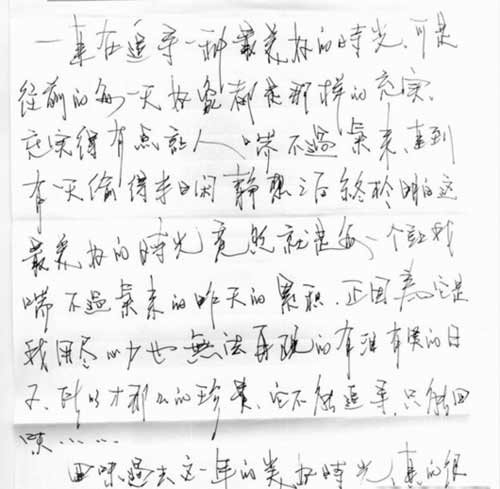 一直在追寻一种最美好的時光、可是
從前的每一天好像都是那样的充実、
充実得有点讓人喘不過氣来、直到
有一天偷得半日闲静想之后终於明白这
最美好的時光竟然就是每一个讓我
喘不過氣来的昨天的累积.正因為它是
我用尽心力也無法再现的有泪有笑的日
子、所以才那么的珍貴、它不能追寻、只能回
味……
回味過去这一年的美好時光、真的很